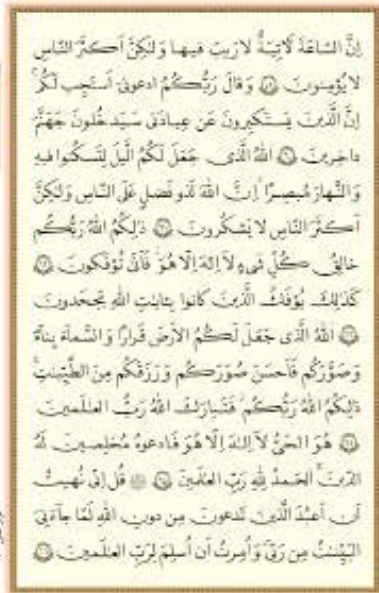 إِنَّ السّاعَةَ لَآتِيَةٌ لا رَيبَ فيها وَلٰكِنَّ أَكثَرَ النّاسِ
لا يُؤمِنونَ ۝ وَقالَ رَبُّكُمُ ادعوني أَستَجِب لَكُم
إِنَّ الَّذينَ يَستَكبِرونَ عَن عِبادَتي سَيَدخُلونَ جَهَنَّمَ
داخِرينَ ۝ اللَّهُ الَّذي جَعَلَ لَكُمُ الَّيلَ لِتَسكُنوا فيهِ
وَالنَّهارَ مُبصِرًا إِنَّ اللَّهَ لَذو فَضلٍ عَلَى النّاسِ وَلٰكِنَّ
أَكثَرَ النّاسِ لا يَشكُرونَ ۝ ذٰلِكُمُ اللَّهُ رَبُّكُم
خالِقُ كُلِّ شَيءٍ لا إِلٰهَ إِلّا هُوَ فَأَنّىٰ تُؤفَكونَ ۝
كَذٰلِكَ يُؤفَكُ الَّذينَ كانوا بِآياتِ اللَّهِ يَجحَدونَ
۝ اللَّهُ الَّذي جَعَلَ لَكُمُ الأَرضَ قَرارًا وَالسَّماءَ بِناءً
وَصَوَّرَكُم فَأَحسَنَ صُوَرَكُم وَرَزَقَكُم مِنَ الطَّيِّباتِ
ذٰلِكُمُ اللَّهُ رَبُّكُم فَتَبارَكَ اللَّهُ رَبُّ العالَمينَ
۝ هُوَ الحَيُّ لا إِلٰهَ إِلّا هُوَ فَادعوهُ مُخلِصينَ لَهُ
الدّينَ الحَمدُ لِلَّهِ رَبِّ العالَمينَ ۝ ۞ قُل إِنّي نُهيتُ
أَن أَعبُدَ الَّذينَ تَدعونَ مِن دونِ اللَّهِ لَمّا جاءَنِيَ
البَيِّناتُ مِن رَبّي وَأُمِرتُ أَن أُسلِمَ لِرَبِّ العالَمينَ ۝